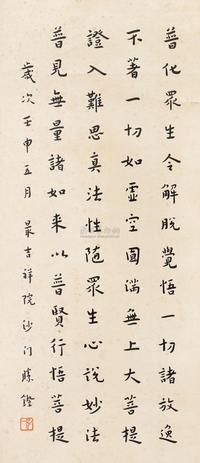 普化眾生令解脫覺悟一切諸放逸
不著一切如虛空圓滿無上大菩提
證入難思真法性隨眾生心說妙法
普見無量諸如來以普賢行悟菩提
歲次壬申五月 最吉祥院沙门勝鐙